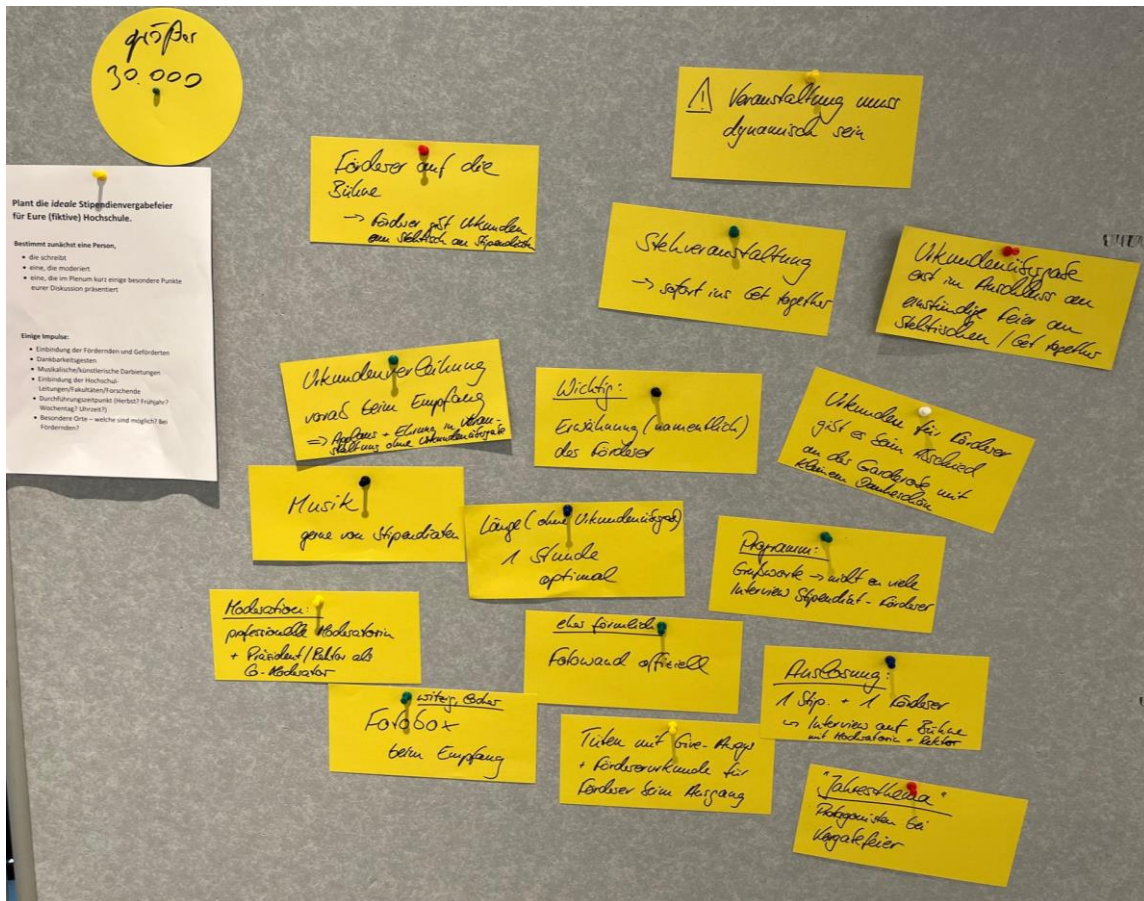 größer
30.000
Plant die ideale Stipendienvergabefeier
für Eure (fiktive) Hochschule.
Bestimmt zunächst eine Person,
• die schreibt
• eine, die moderiert
• eine, die im Plenum kurz einige besondere Punkte
eurer Diskussion präsentiert
Einige Impulse:
• Einbindung der Fördernden und Geförderten
• Dankbarkeitsgesten
• Musikalische/künstlerische Darbietungen
• Einbindung der Hochschul-
Leitungen/Fakultäten/Forschende
• Durchführungszeitpunkt (Herbst? Frühjahr?
Wochentag? Uhrzeit?)
• Besondere Orte – welche sind möglich? Bei
Fördernden?
⚠ Veranstaltung muss
dynamisch sein
Förderer auf die
Bühne
→ Förderer gibt Urkunden
am Stehtisch an Stipendiaten
Stehveranstaltung
→ sofort ins Get together
Urkundenübergabe
erst im Anschluss an
einstündige Feier an
Stehtischen / Get together
Urkundenverleihung
vorab beim Empfang
⇒ Applaus + Ehrung in Veran-
staltung ohne Urkundenübergabe
Wichtig:
Erwähnung (namentlich)
des Förderer
Urkunden für Förderer
gibt es beim Abschied
an der Garderobe mit
kleinem Dankeschön
Musik
gerne von Stipendiaten
Länge (ohne Urkundenübergabe)
1 Stunde
optimal
Programm:
Grußworte → nicht zu viele
Interview Stipendiat - Förderer
Moderation:
professionelle Moderatorin
+ Präsident/Rektor als
Co-Moderator
eher förmlich
Fotowand offiziell
Auslosung:
1 Stip. + 1 Förderer
↳ Interview auf Bühne
mit Moderatorin + Rektor
witzig, locker
Fotobox
beim Empfang
Tüten mit Give-Aways
+ Fördererurkunde für
Förderer beim Ausgang
"Jahresthema"
Protagonisten bei
Vergabefeier